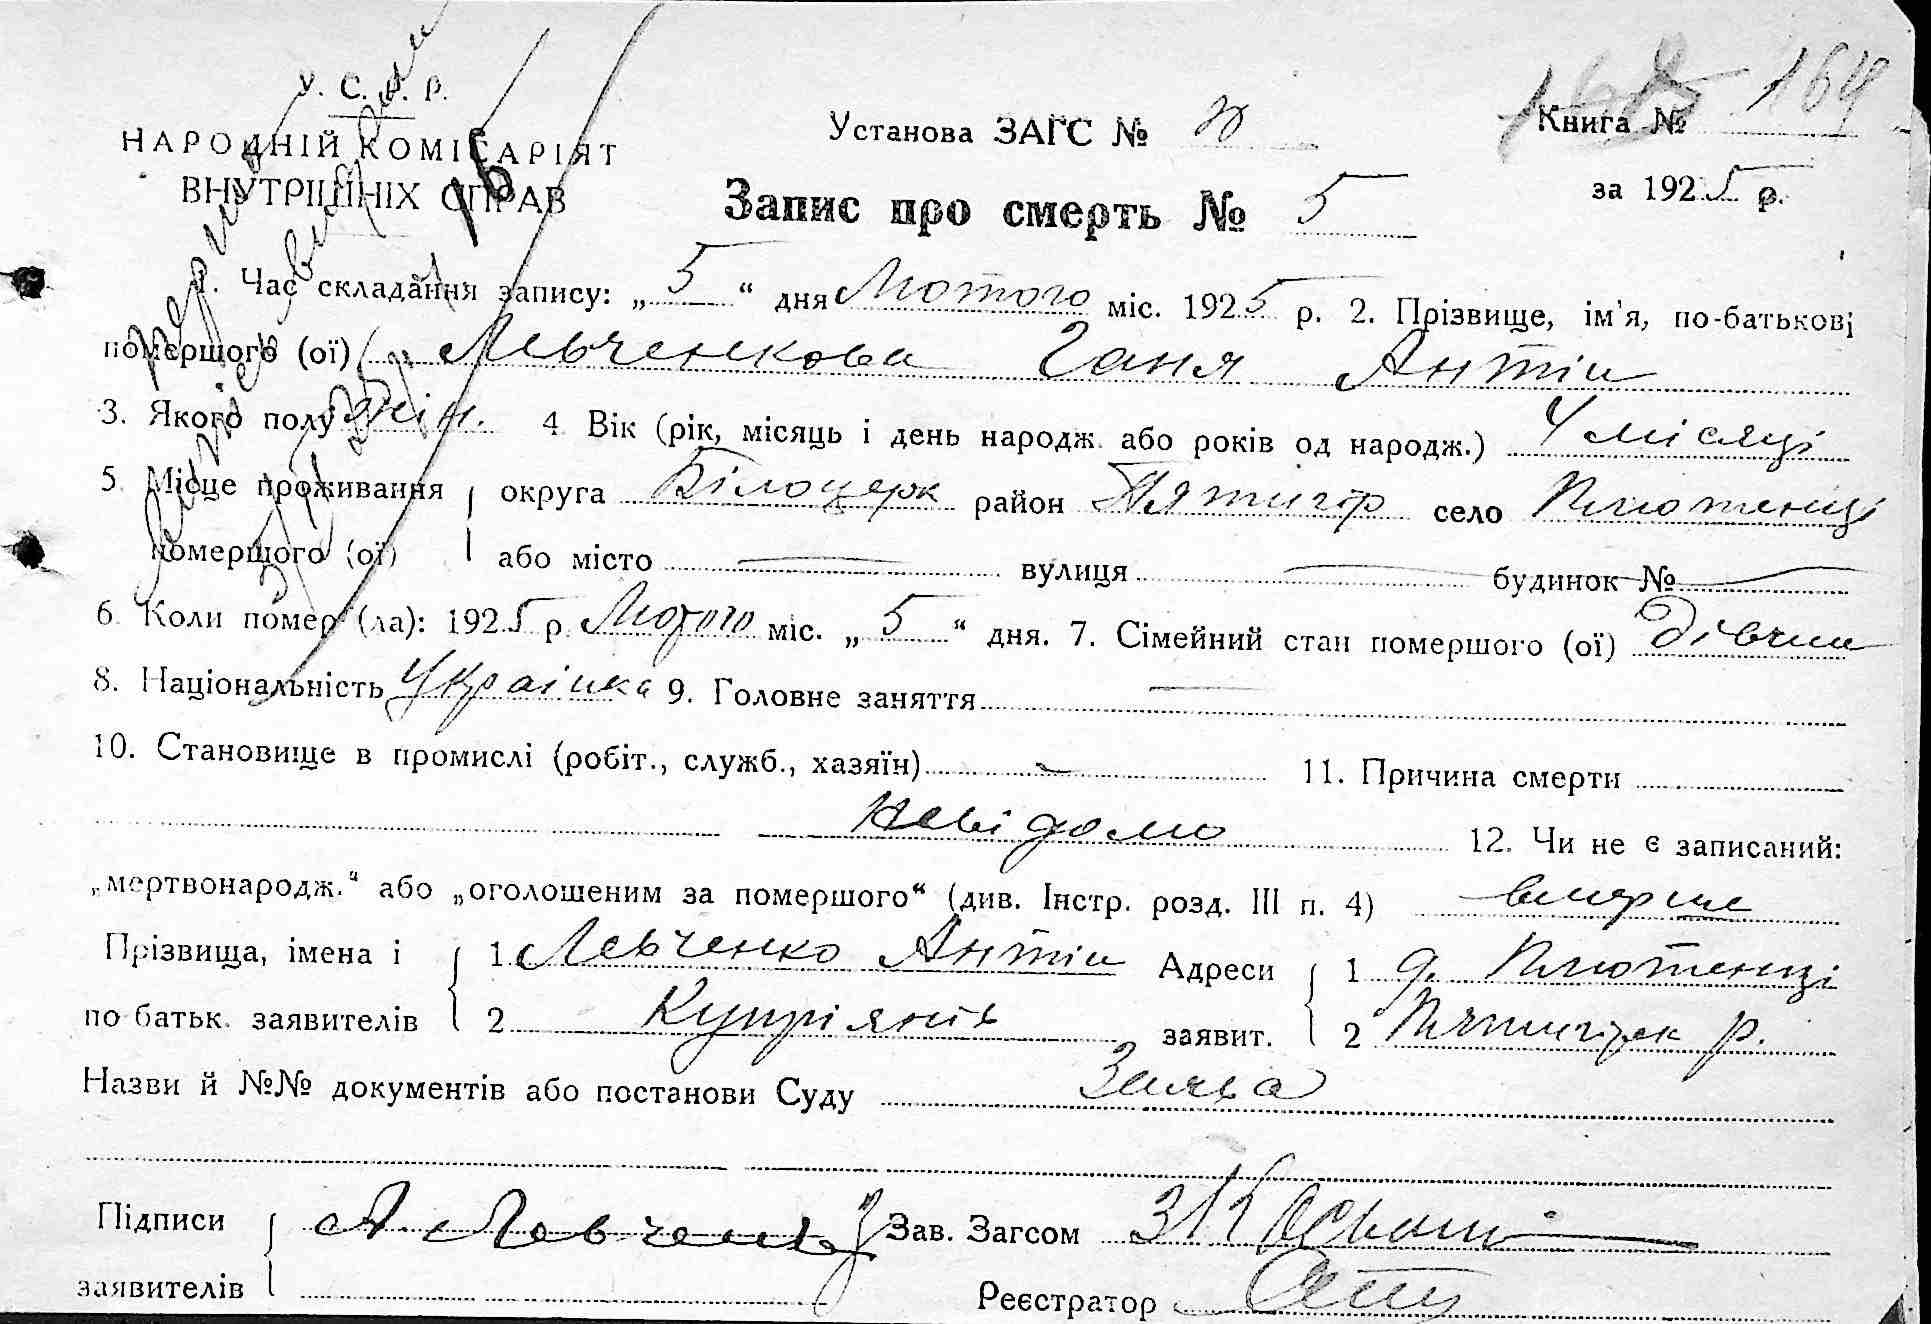 У. С. Р. Р.
НАРОДНІЙ КОМІСАРІЯТ
ВНУТРІШНІХ СПРАВ
Установа ЗАГС №
Книга № 164
за 1925 р.
Запис про смерть № 5
1. Час складання запису: „5“ дня Лютого міс. 1925 р. 2. Прізвище, ім'я, по-батькові
помершого (ої) Левченкова Ганя Антін
3. Якого полу жін. 4 Вік (рік, місяць і день народж. або років од народж.) 4 місяці
5. Місце проживання помершого (ої) округа Білоцерк район Пятигір село Плютенці
або місто — вулиця — будинок № —
6. Коли помер (ла): 1925 р. Лютого міс. „5“ дня. 7. Сімейний стан помершого (ої) Дівчин
8. Національність Українка 9. Головне заняття —
10. Становище в промислі (робіт., служб., хазяїн) — 11. Причина смерти
Невідомо 12. Чи не є записаний:
„мертвонародж.“ або „оголошеним за помершого“ (див. Інстр. розд. III п. 4) вмерше
Прізвища, імена і по батьк. заявителів 1 Левченко Антін Адреси заявит. 1 д. Плютенці
2 Купріянів 2 Пятигірск р.
Назви й №№ документів або постанови Суду Заява
Підписи заявителів А. Левченко Зав. Загсом
Реєстратор